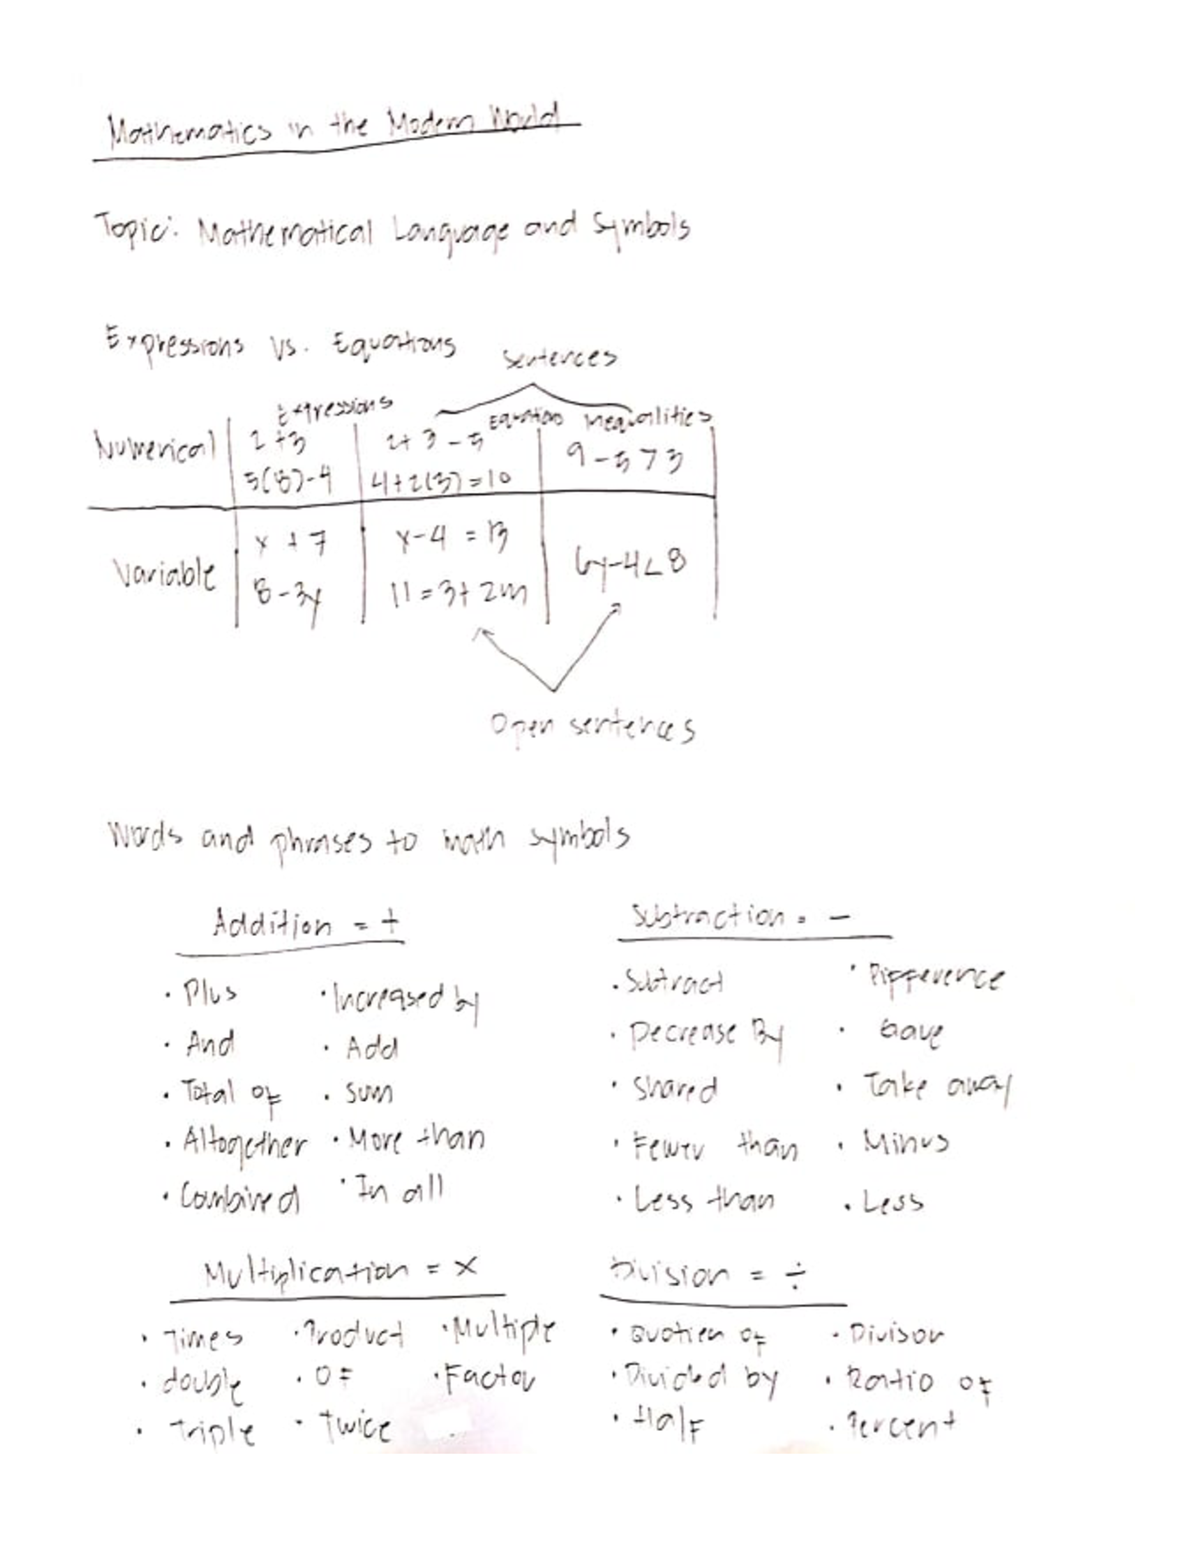 Mathematics in the Modern World
Topic: Mathematical Language and Symbols
Expressions vs. Equations
Sentences
Expressions Equations Inequalities
Numerical 2+3 2+3-5 9-5>3
5(8)-4 4+2(3)=10
Variable x+7 x-4=13 6y-4<8
8-3y 11=3+2m
Open sentences
Words and phrases to math symbols
Addition = + Subtraction = -
· Plus · Increased by · Subtract · Difference
· And · Add · Decrease By · Gave
· Total of · Sum · Shared · Take away
· Altogether · More than · Fewer than · Minus
· Combined · In all · Less than · Less
Multiplication = x Division = ÷
· Times · Product · Multiple · Quotien of · Divisor
· double · OF · Factor · Divided by · Ratio of
· Triple · Twice · Half · Percent